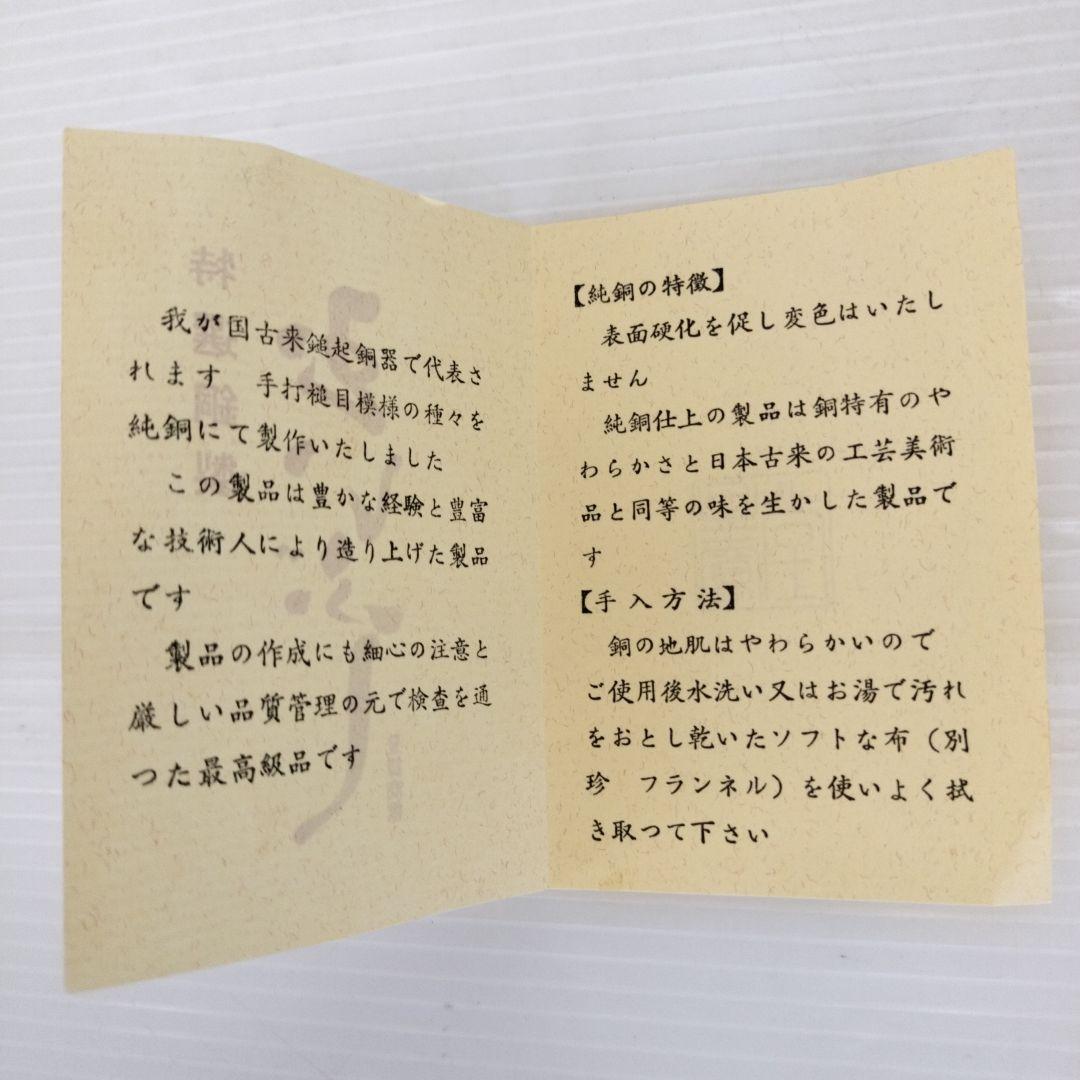 我が国古来鎚起銅器で代表さ
れます　手打槌目模様の種々を
純銅にて製作いたしました
この製品は豊かな経験と豊富
な技術人により造り上げた製品
です
製品の作成にも細心の注意と
厳しい品質管理の元で検査を通
つた最高級品です
【純銅の特徴】
表面硬化を促し変色はいたし
ません
純銅仕上の製品は銅特有のや
わらかさと日本古来の工芸美術
品と同等の味を生かした製品で
す
【手入方法】
銅の地肌はやわらかいので
ご使用後水洗い又はお湯で汚れ
をおとし乾いたソフトな布（別
珍　フランネル）を使いよく拭
き取つて下さい